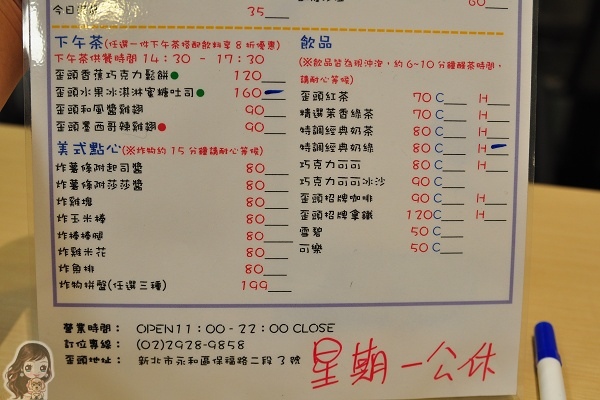 35
60
下午茶(任選一件下午茶搭配飲料享8折優惠)
下午茶供餐時間14：30 - 17：30
歪頭香蕉巧克力鬆餅 120
歪頭水果冰淇淋蜜糖吐司 160
歪頭和風醬雞翅 90
歪頭墨西哥辣雞翅 90
美式點心(※炸物約15分鐘請耐心等候)
炸薯條附起司醬 80
炸薯條附莎莎醬 80
炸雞塊 80
炸玉米棒 80
炸棒棒腿 80
炸雞米花 80
炸魚排 80
炸物拼盤(任選三種) 199
飲品
(※飲品皆為現沖泡，約6~10分鐘醒茶時間，
請耐心等候)
歪頭紅茶 70 C H
精選茉香綠茶 70 C H
特調經典奶茶 80 C H
特調經典奶綠 80 C H
巧克力可可 80 C H
巧克力可可冰沙 90 C
歪頭招牌咖啡 90 C H
歪頭招牌拿鐵 120 C H
雪碧 50 C
可樂 50 C
營業時間： OPEN11：00 - 22：00 CLOSE
訂位專線： (02)2928-9858
歪頭地址： 新北市永和區保福路二段3號
星期一公休